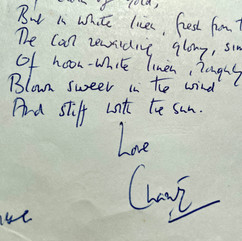 of gold,
But in white linen, fresh from t
The cool rewarding glory, sim
Of noon-white linen, roughly
Blown sweet in the wind
And stiff with the sun.
Love